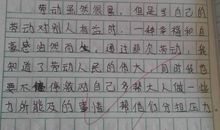 劳动虽然很累，但是当自己的
劳动对别人有益时，一种幸福和自
豪感油然而生，通过这次劳动，我
知道了劳动人民的伟大，同时我也
要不停激对自己多帮大人做一些
力所能及的事情，帮他们分担压力